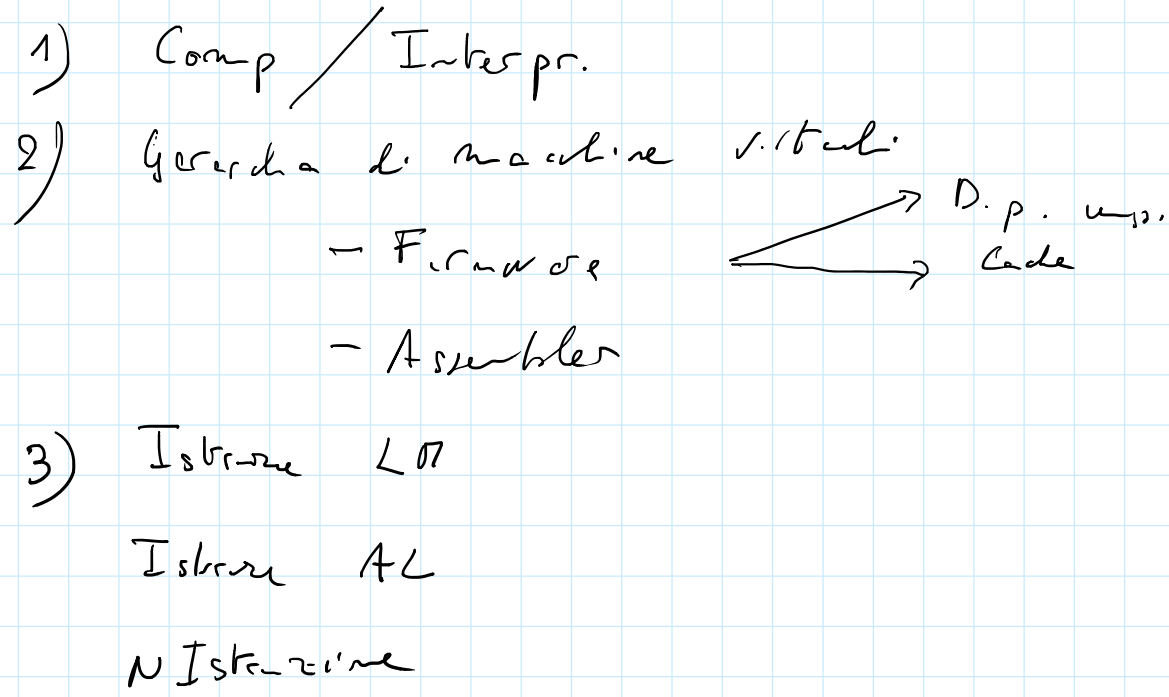 1) Comp / Interpr.
2) Gerarchia di macchine virtuali
D. p.
- Firmware
Cache
- Assembler
3) Istruzione LM
Istruzione AL
N Istruzione